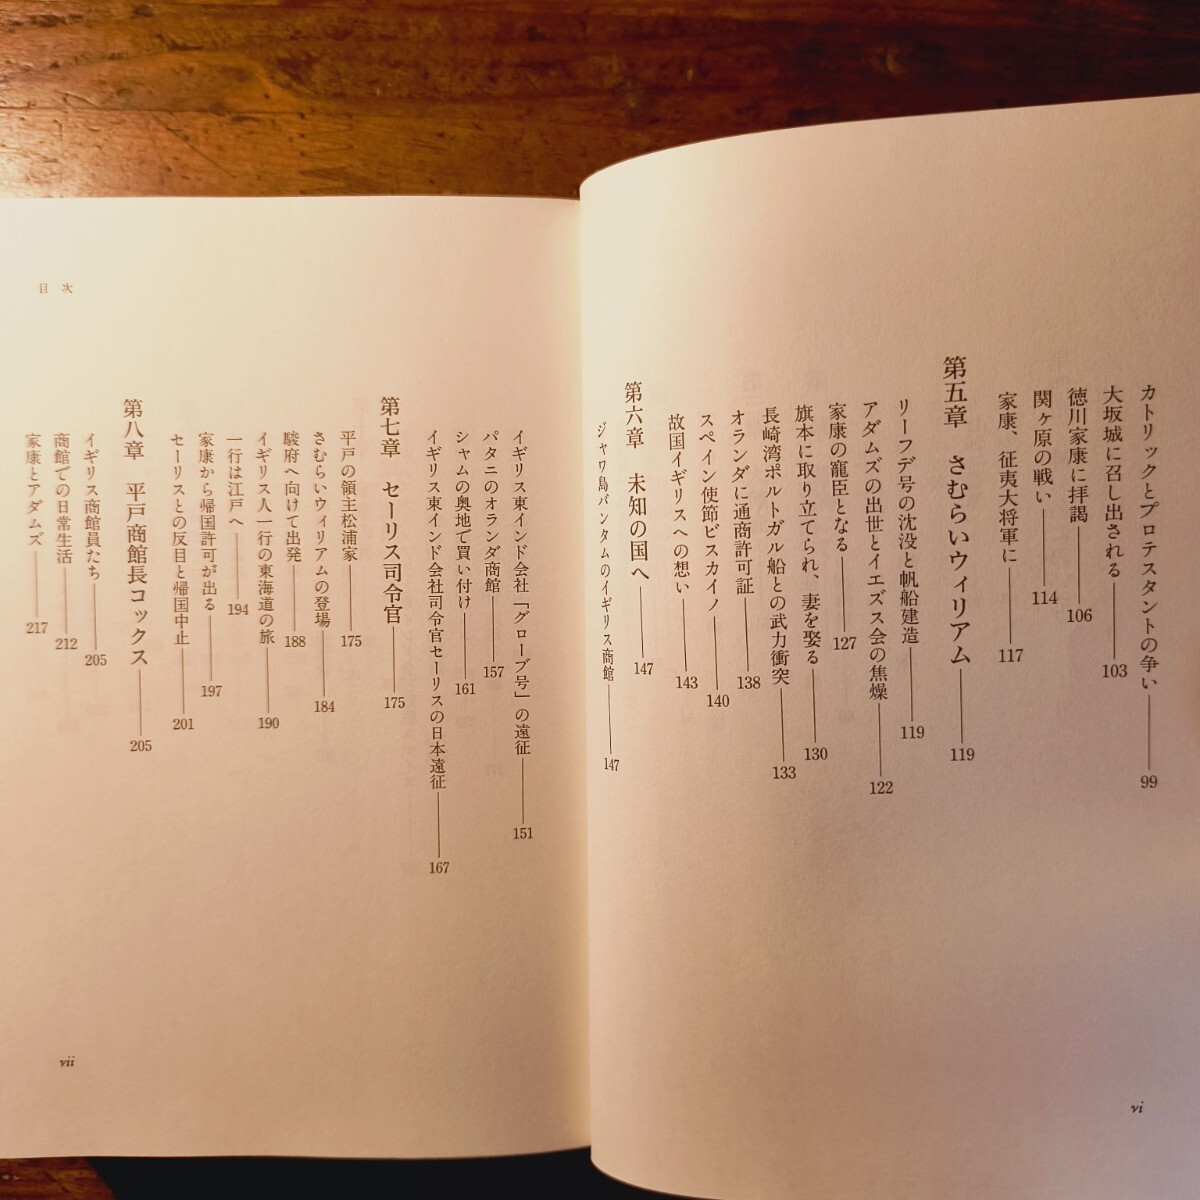 カトリックとプロテスタントの争い 99
大坂城に召し出される 103
徳川家康に拝謁 106
関ヶ原の戦い 114
家康、征夷大将軍に 117
第五章 さむらいウィリアム 119
リーフデ号の沈没と帆船建造 119
アダムズの出世とイエズス会の焦燥 122
家康の寵臣となる 127
旗本に取り立てられ、妻を娶る 130
長崎湾ポルトガル船との武力衝突 133
オランダに通商許可証 138
スペイン使節ビスカイノ 140
故国イギリスへの想い 143
第六章 未知の国へ 147
ジャワ島バンタムのイギリス商館 147
vi
目次
イギリス東インド会社「グローブ号」の遠征 151
パタニのオランダ商館 157
シャムの奥地で買い付け 161
イギリス東インド会社司令官セーリスの日本遠征 167
第七章 セーリス司令官 175
平戸の領主松浦家 175
さむらいウィリアムの登場 184
駿府へ向けて出発 188
イギリス人一行の東海道の旅 190
一行は江戸へ 194
家康から帰国許可が出る 197
セーリスとの反目と帰国中止 201
第八章 平戸商館長コックス 205
イギリス商館員たち 205
商館での日常生活 212
家康とアダムズ 217
vii